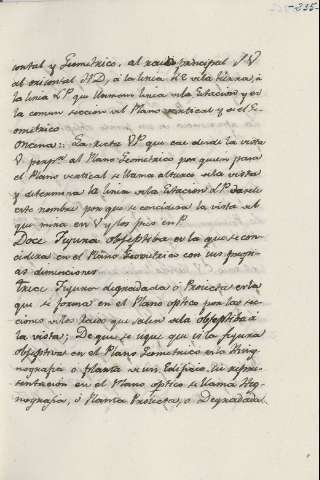 -235-
zontal y Geometrico. al rayo principal
al orizontal HD, á la linea de de la tierra, á
la linea LP que llaman linea de la Estacion y es
la comun seccion del Plano vertical y el Ge-
ometrico
Oncena: La recta VP que cae desde la vista
V perp.r al Plano Geometrico por quien pasa
el Plano vertical se llama altura de la vista
y determina la linea de la Estacion LP dasele
este nombre por que se considera la vista del
que mira en V y los pies en P.
Doce Figura obgeptiba es la que se con
cidera en el Plano Geometrico con sus propri-
as dimenciones
Trece Figura degradada ó Proiecta es la
que se forma en el Plano optico por las sec-
ciones de los raios que salen de la obgeptiba á
la vista; De que se sigue que si la figura
obgeptiva en el Plano Geometrico es la Ihcng-
nografia o planta de un Edificio. su repre-
sentacion en el Plano optico se llama Ihcg-
nografia, ó Planta Proiecta, o Degradada.